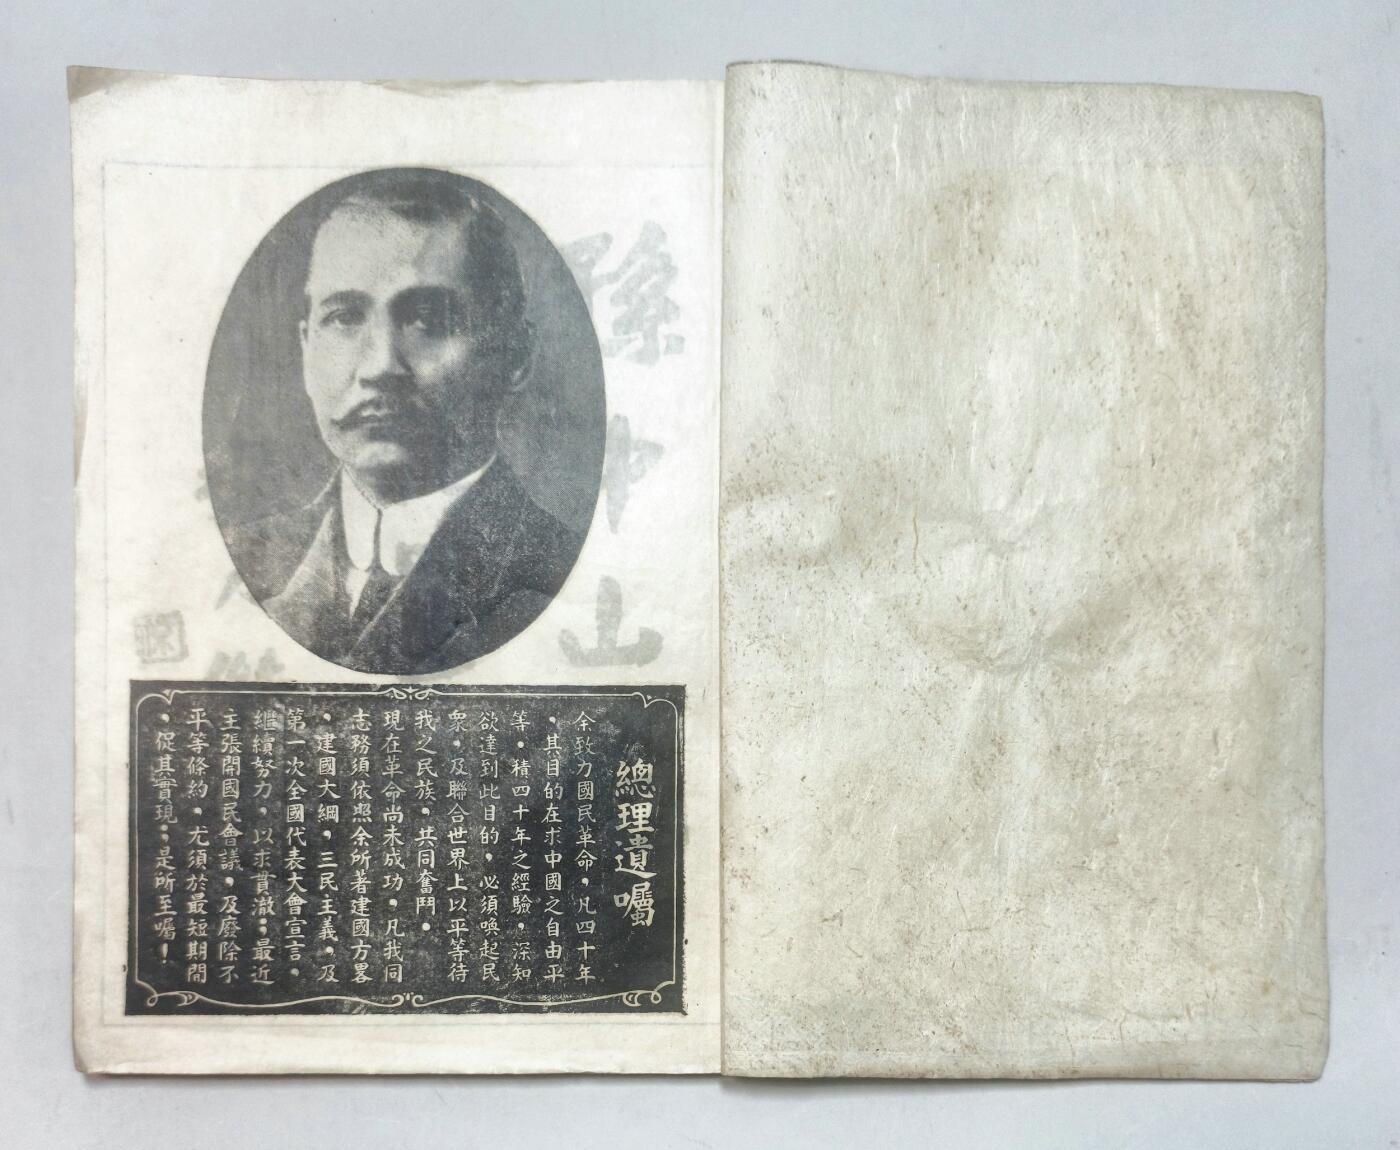 總理遺囑
余致力國民革命，凡四十年
，其目的在求中國之自由平
等。積四十年之經驗，深知
欲達到此目的，必須喚起民
衆，及聯合世界上以平等待
我之民族，共同奮鬥。
現在革命尚未成功，凡我同
志務須依照余所著建國方畧
，建國大綱，三民主義，及
第一次全國代表大會宣言，
繼續努力，以求貫澈；最近
主張開國民會議，及廢除不
平等條約，尤須於最短期間
，促其實現；是所至囑！
孫中山